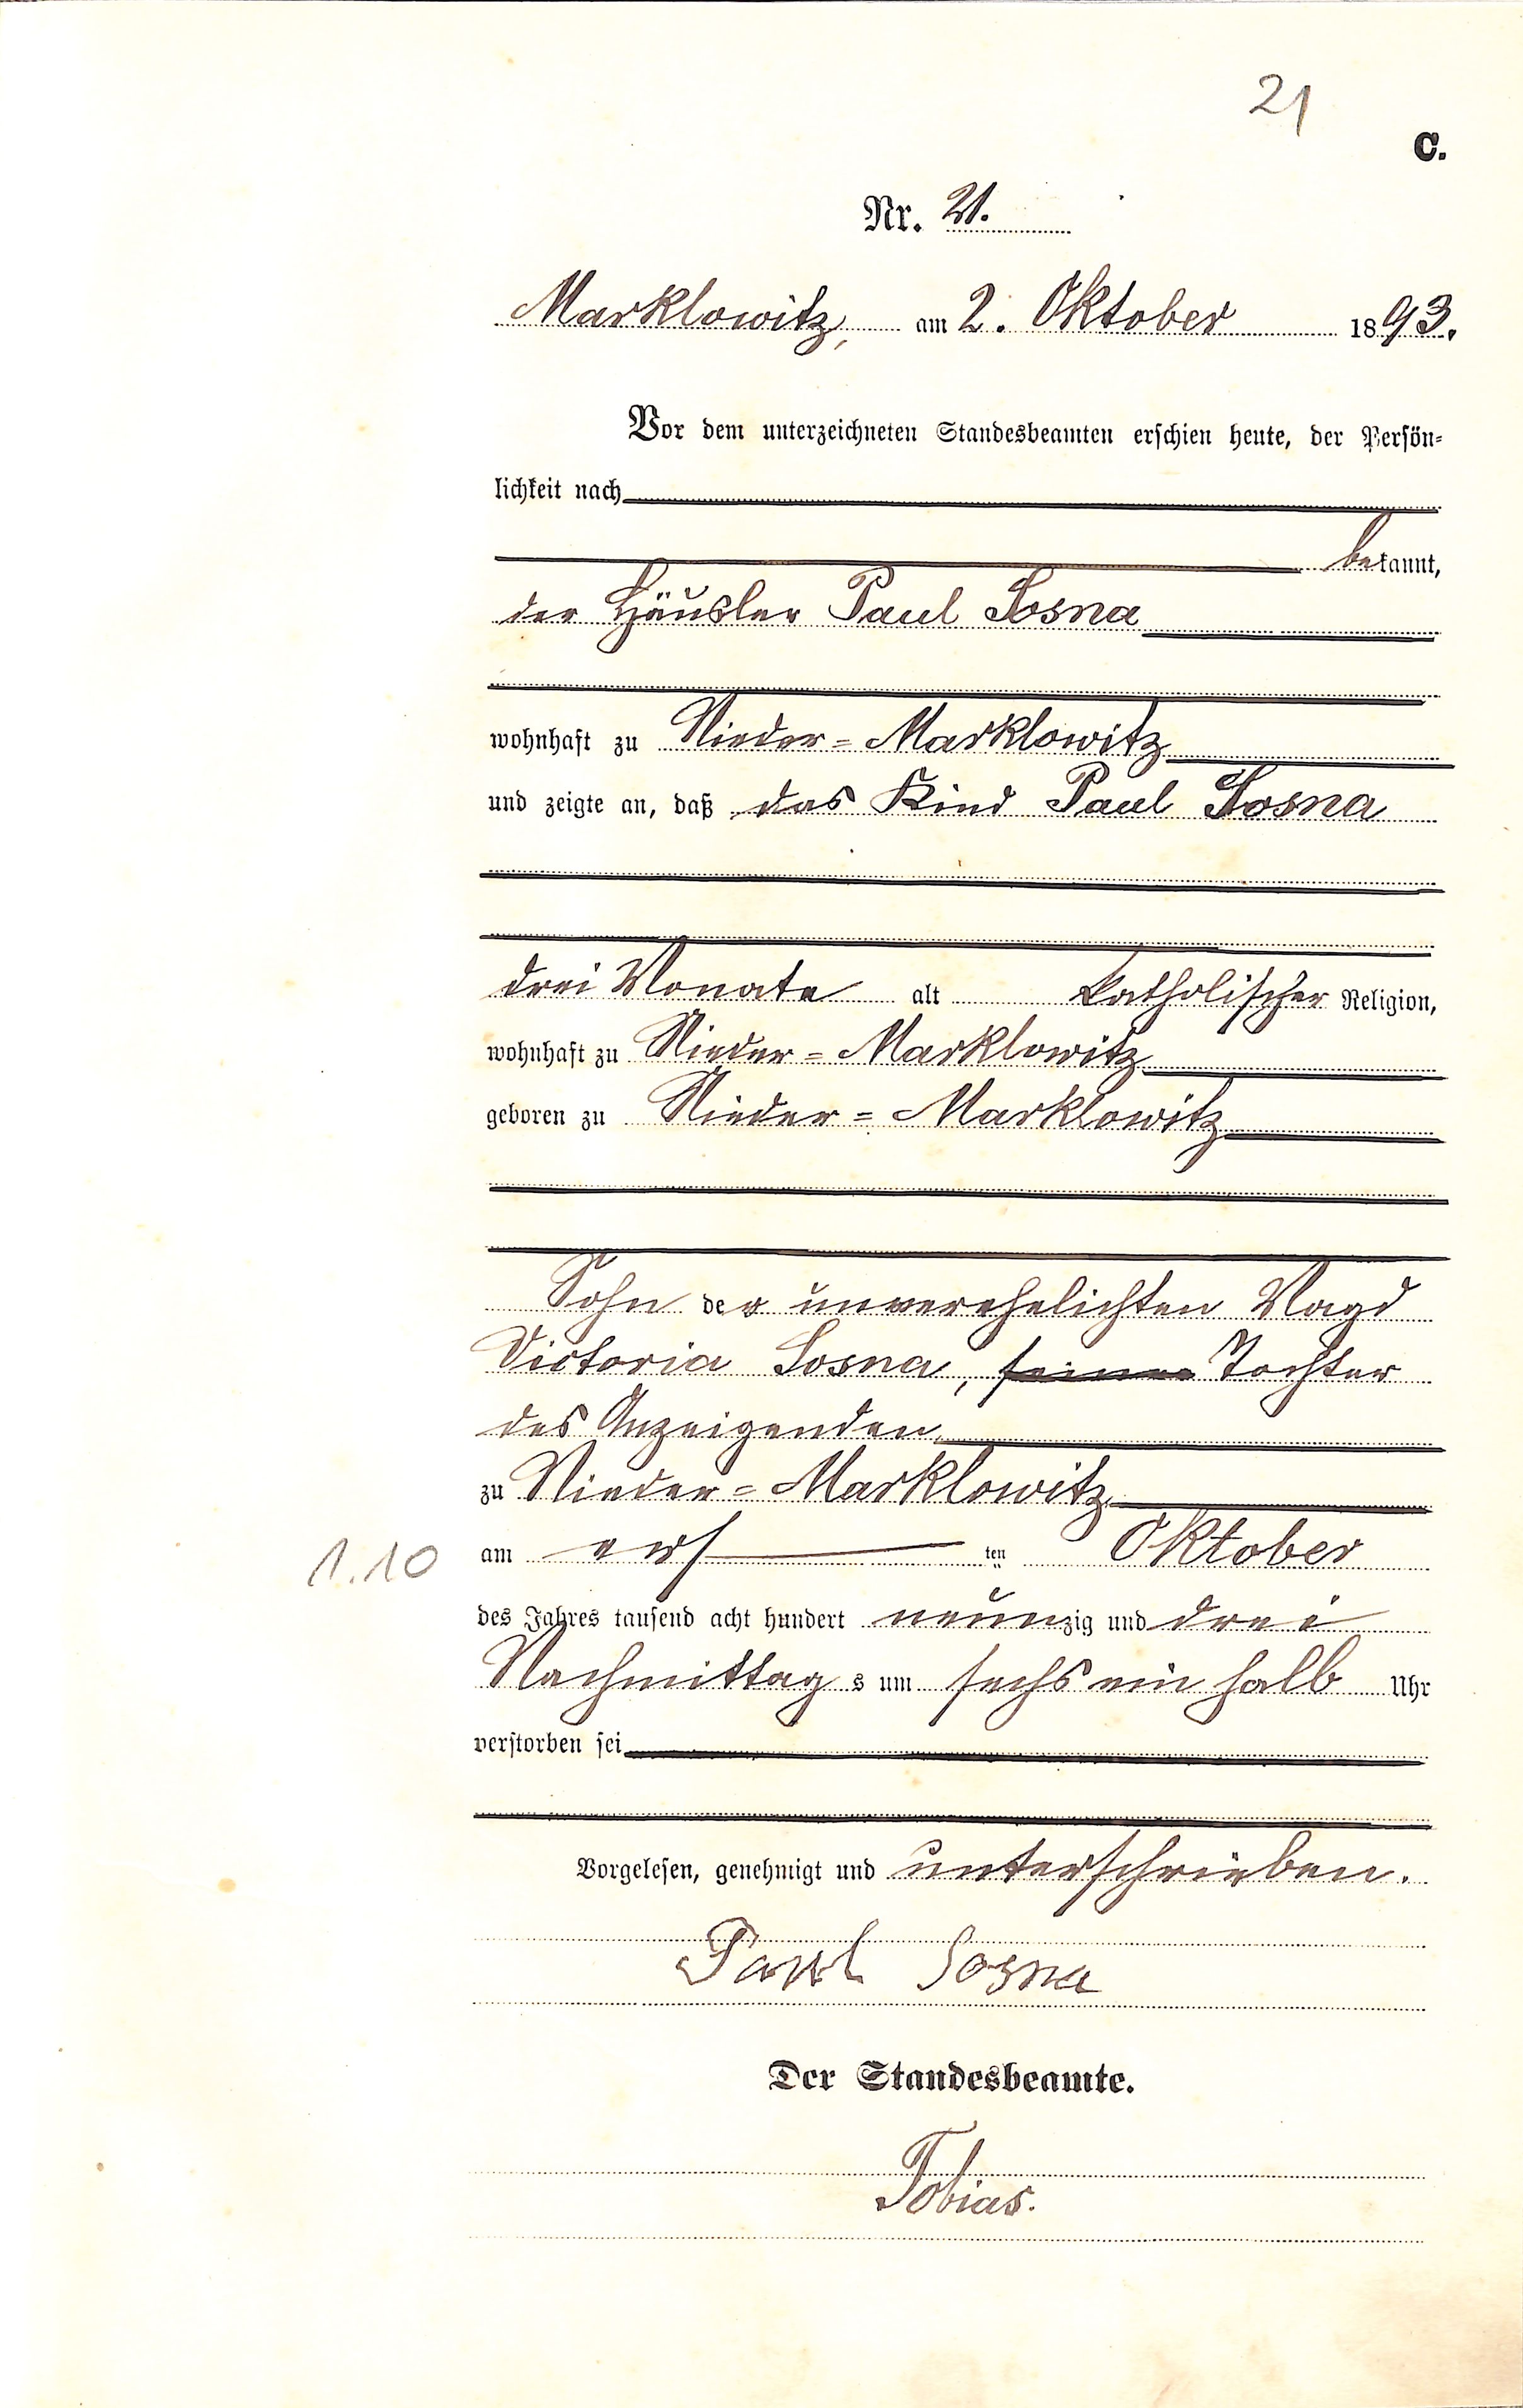 21
C.
Nr. 21.
Marklowitz, am 2. Oktober 1893.
Vor dem unterzeichneten Standesbeamten erschien heute, der Persön-
lichkeit nach
bekannt,
der Häusler Paul Sosna
wohnhaft zu Nieder-Marklowitz
und zeigte an, daß das Kind Paul Sosna
drei Monate alt katholischer Religion,
wohnhaft zu Nieder-Marklowitz
geboren zu Nieder-Marklowitz
Sohn der unverehelichten Magd
Victoria Sosna, seiner Tochter
des Anzeigenden
zu Nieder-Marklowitz
1.10 am ers ten Oktober
des Jahres tausend acht hundert neunzig und drei
Nachmittags um sechs ein halb Uhr
verstorben sei
Vorgelesen, genehmigt und unterschrieben.
Paul Sosna
Der Standesbeamte.
Tobias.